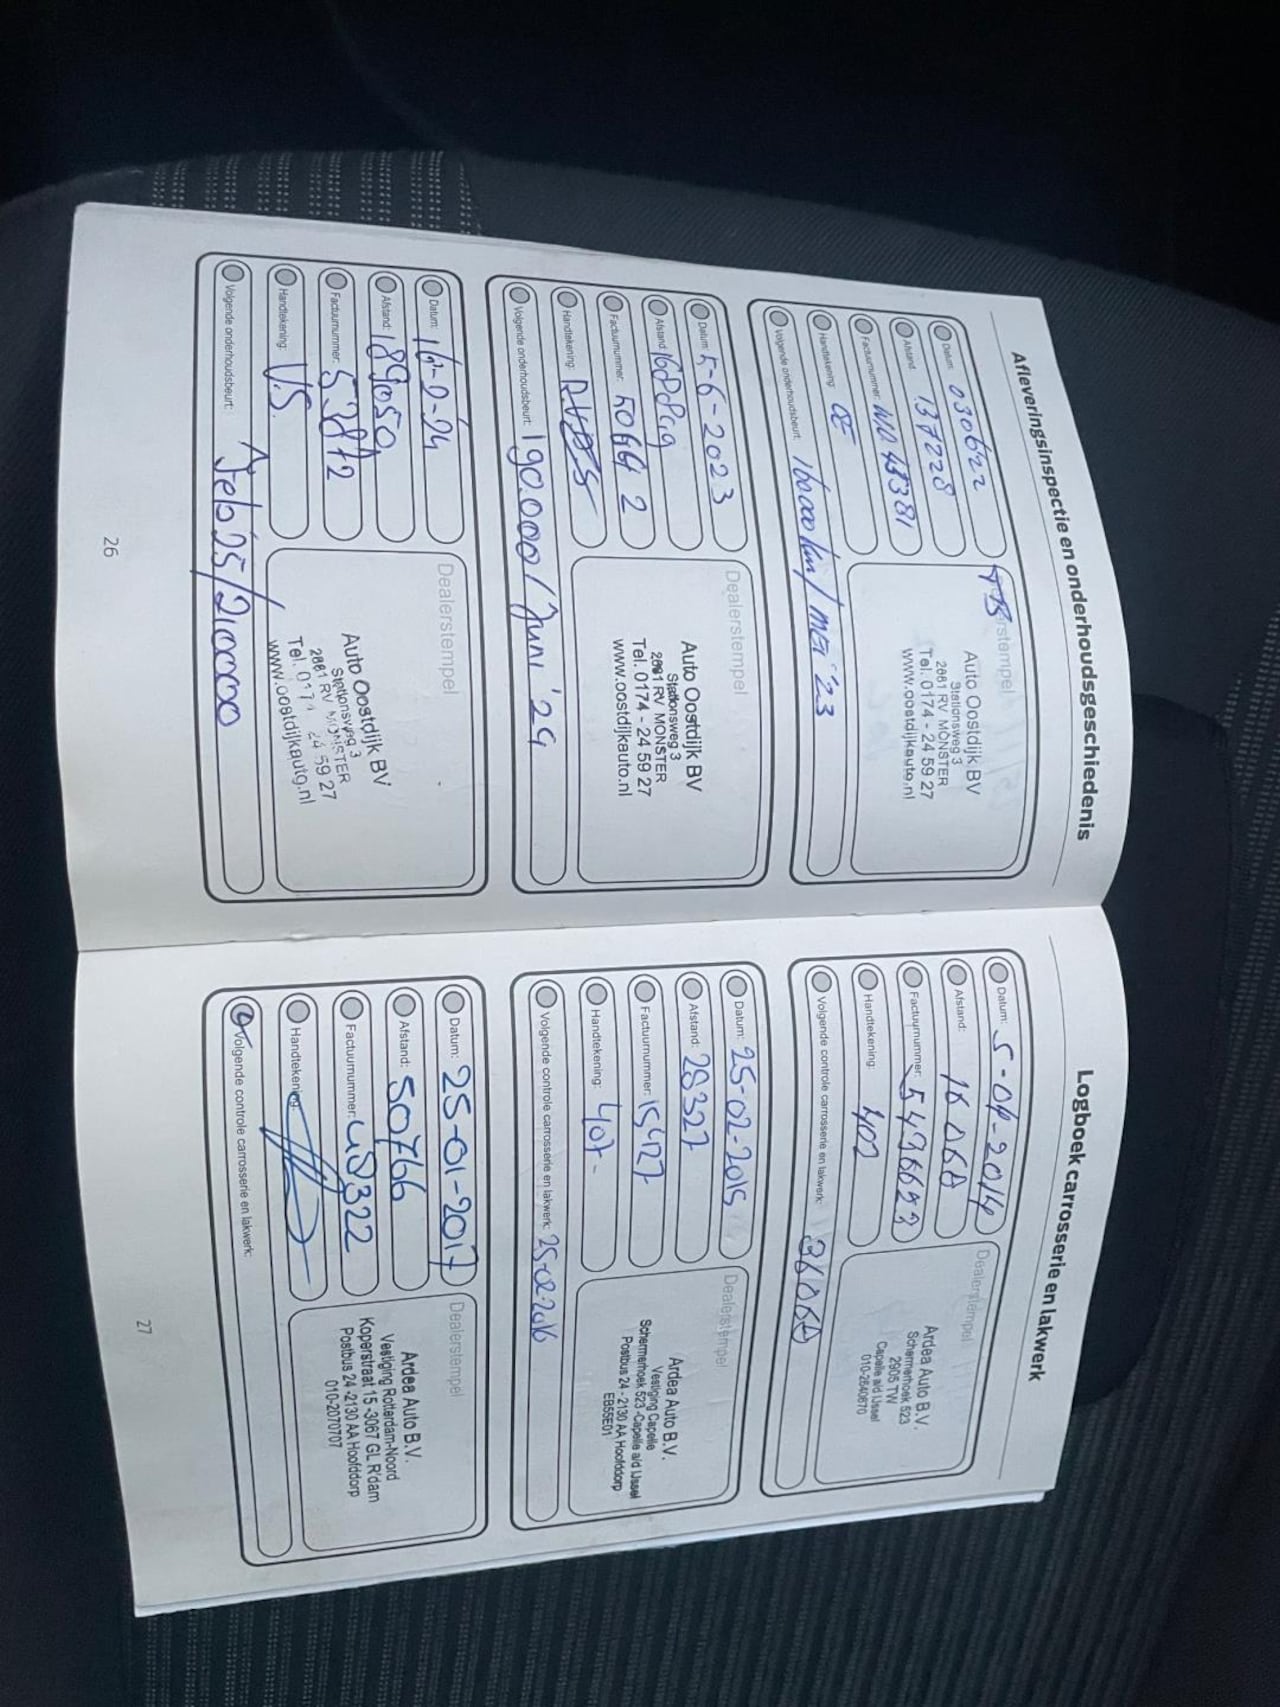 Afleveringsinspectie en onderhoudsgeschiedenis
Datum: 030622
Afstand: 137228
Factuurnummer:
Handtekening:
Volgende onderhoudsbeurt: 160000 km / MEI '23
Auto Oostdijk BV
Stationsweg 3
2681 RV MONSTER
Tel. 0174 - 24 59 27
www.oostdijkauto.nl
Datum: 5-6-2023
Afstand:
Factuurnummer: 50662
Handtekening:
Volgende onderhoudsbeurt: 190.000 / Juni '24
Dealerstempel
Auto Oostdijk BV
Stationsweg 3
2681 RV MONSTER
Tel. 0174 - 24 59 27
www.oostdijkauto.nl
Datum:
Afstand: 189050
Factuurnummer: 53872
Handtekening: V.S.
Volgende onderhoudsbeurt: Feb '25 / 210000
Dealerstempel
Auto Oostdijk BV
Stationsweg 3
2681 RV MONSTER
Tel. 0174 24 59 27
www.oostdijkauto.nl
26
Logboek carrosserie en lakwerk
Datum:
Afstand: 16060
Factuurnummer:
Handtekening: 402
Volgende controle carrosserie en lakwerk: 36060
Dealerstempel
Ardea Auto B.V.
Schermerhoek 523
2905 TW
Capelle a/d IJssel
010-2640670
Datum: 25-02-2015
Afstand: 28327
Factuurnummer: 15427
Handtekening: 407-
Volgende controle carrosserie en lakwerk: 25-02-2016
Dealerstempel
Ardea Auto B.V.
Vestiging Capelle
Schermerhoek 523 -Capelle a/d IJssel
Postbus 24 - 2130 AA Hoofddorp
EB55E01
Datum: 25-01-2017
Afstand: 50766
Factuurnummer: 48322
Handtekening:
Volgende controle carrosserie en lakwerk:
Dealerstempel
Ardea Auto B.V.
Vestiging Rotterdam-Noord
Koperstraat 15 -3067 GL R'dam
Postbus 24 -2130 AA Hoofddorp
010-2070707
27